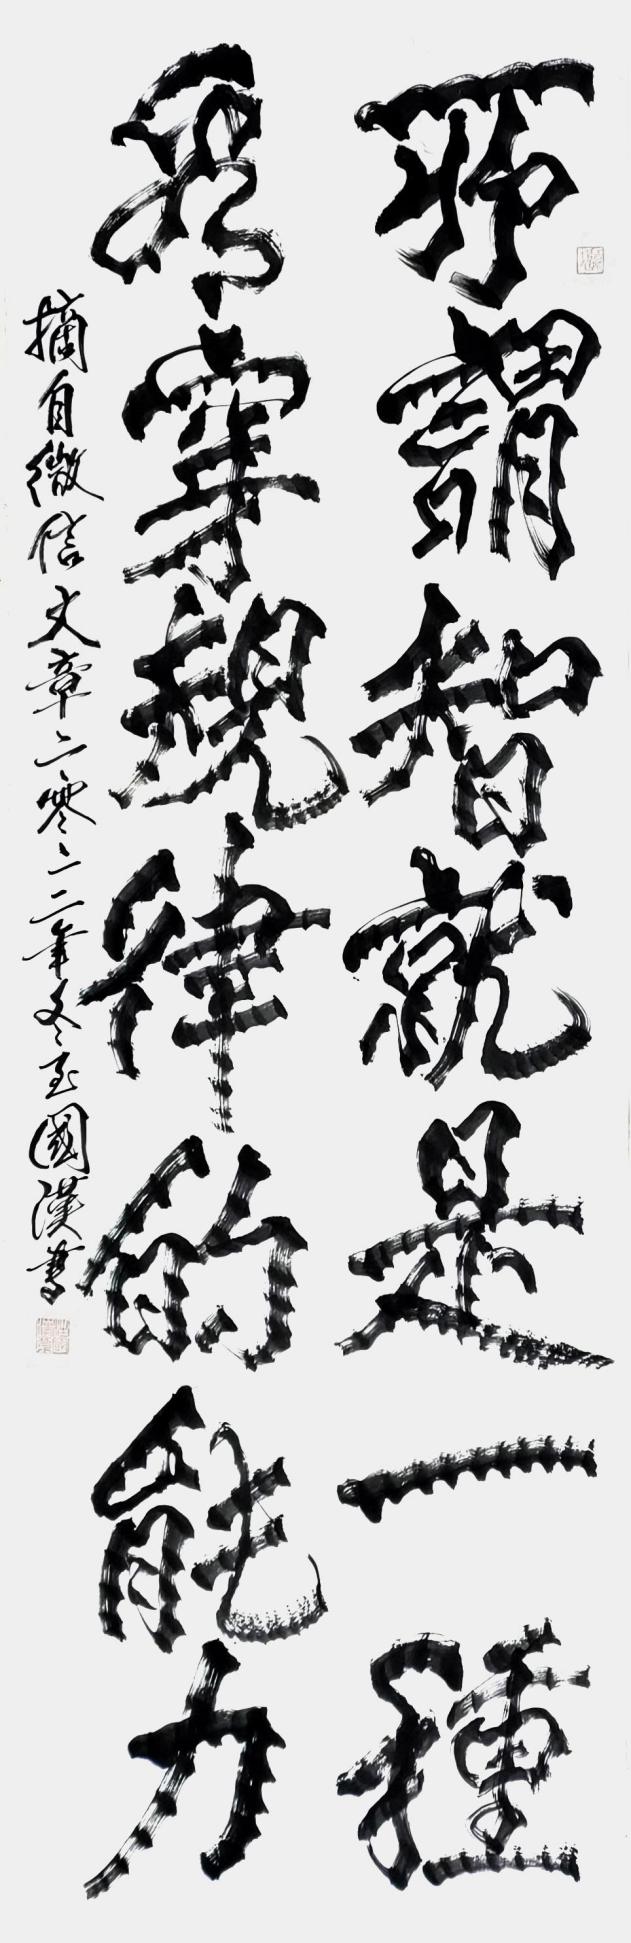 所謂智就是一種
看穿規律的能力
摘自微信文章二零二二年冬至國漢書